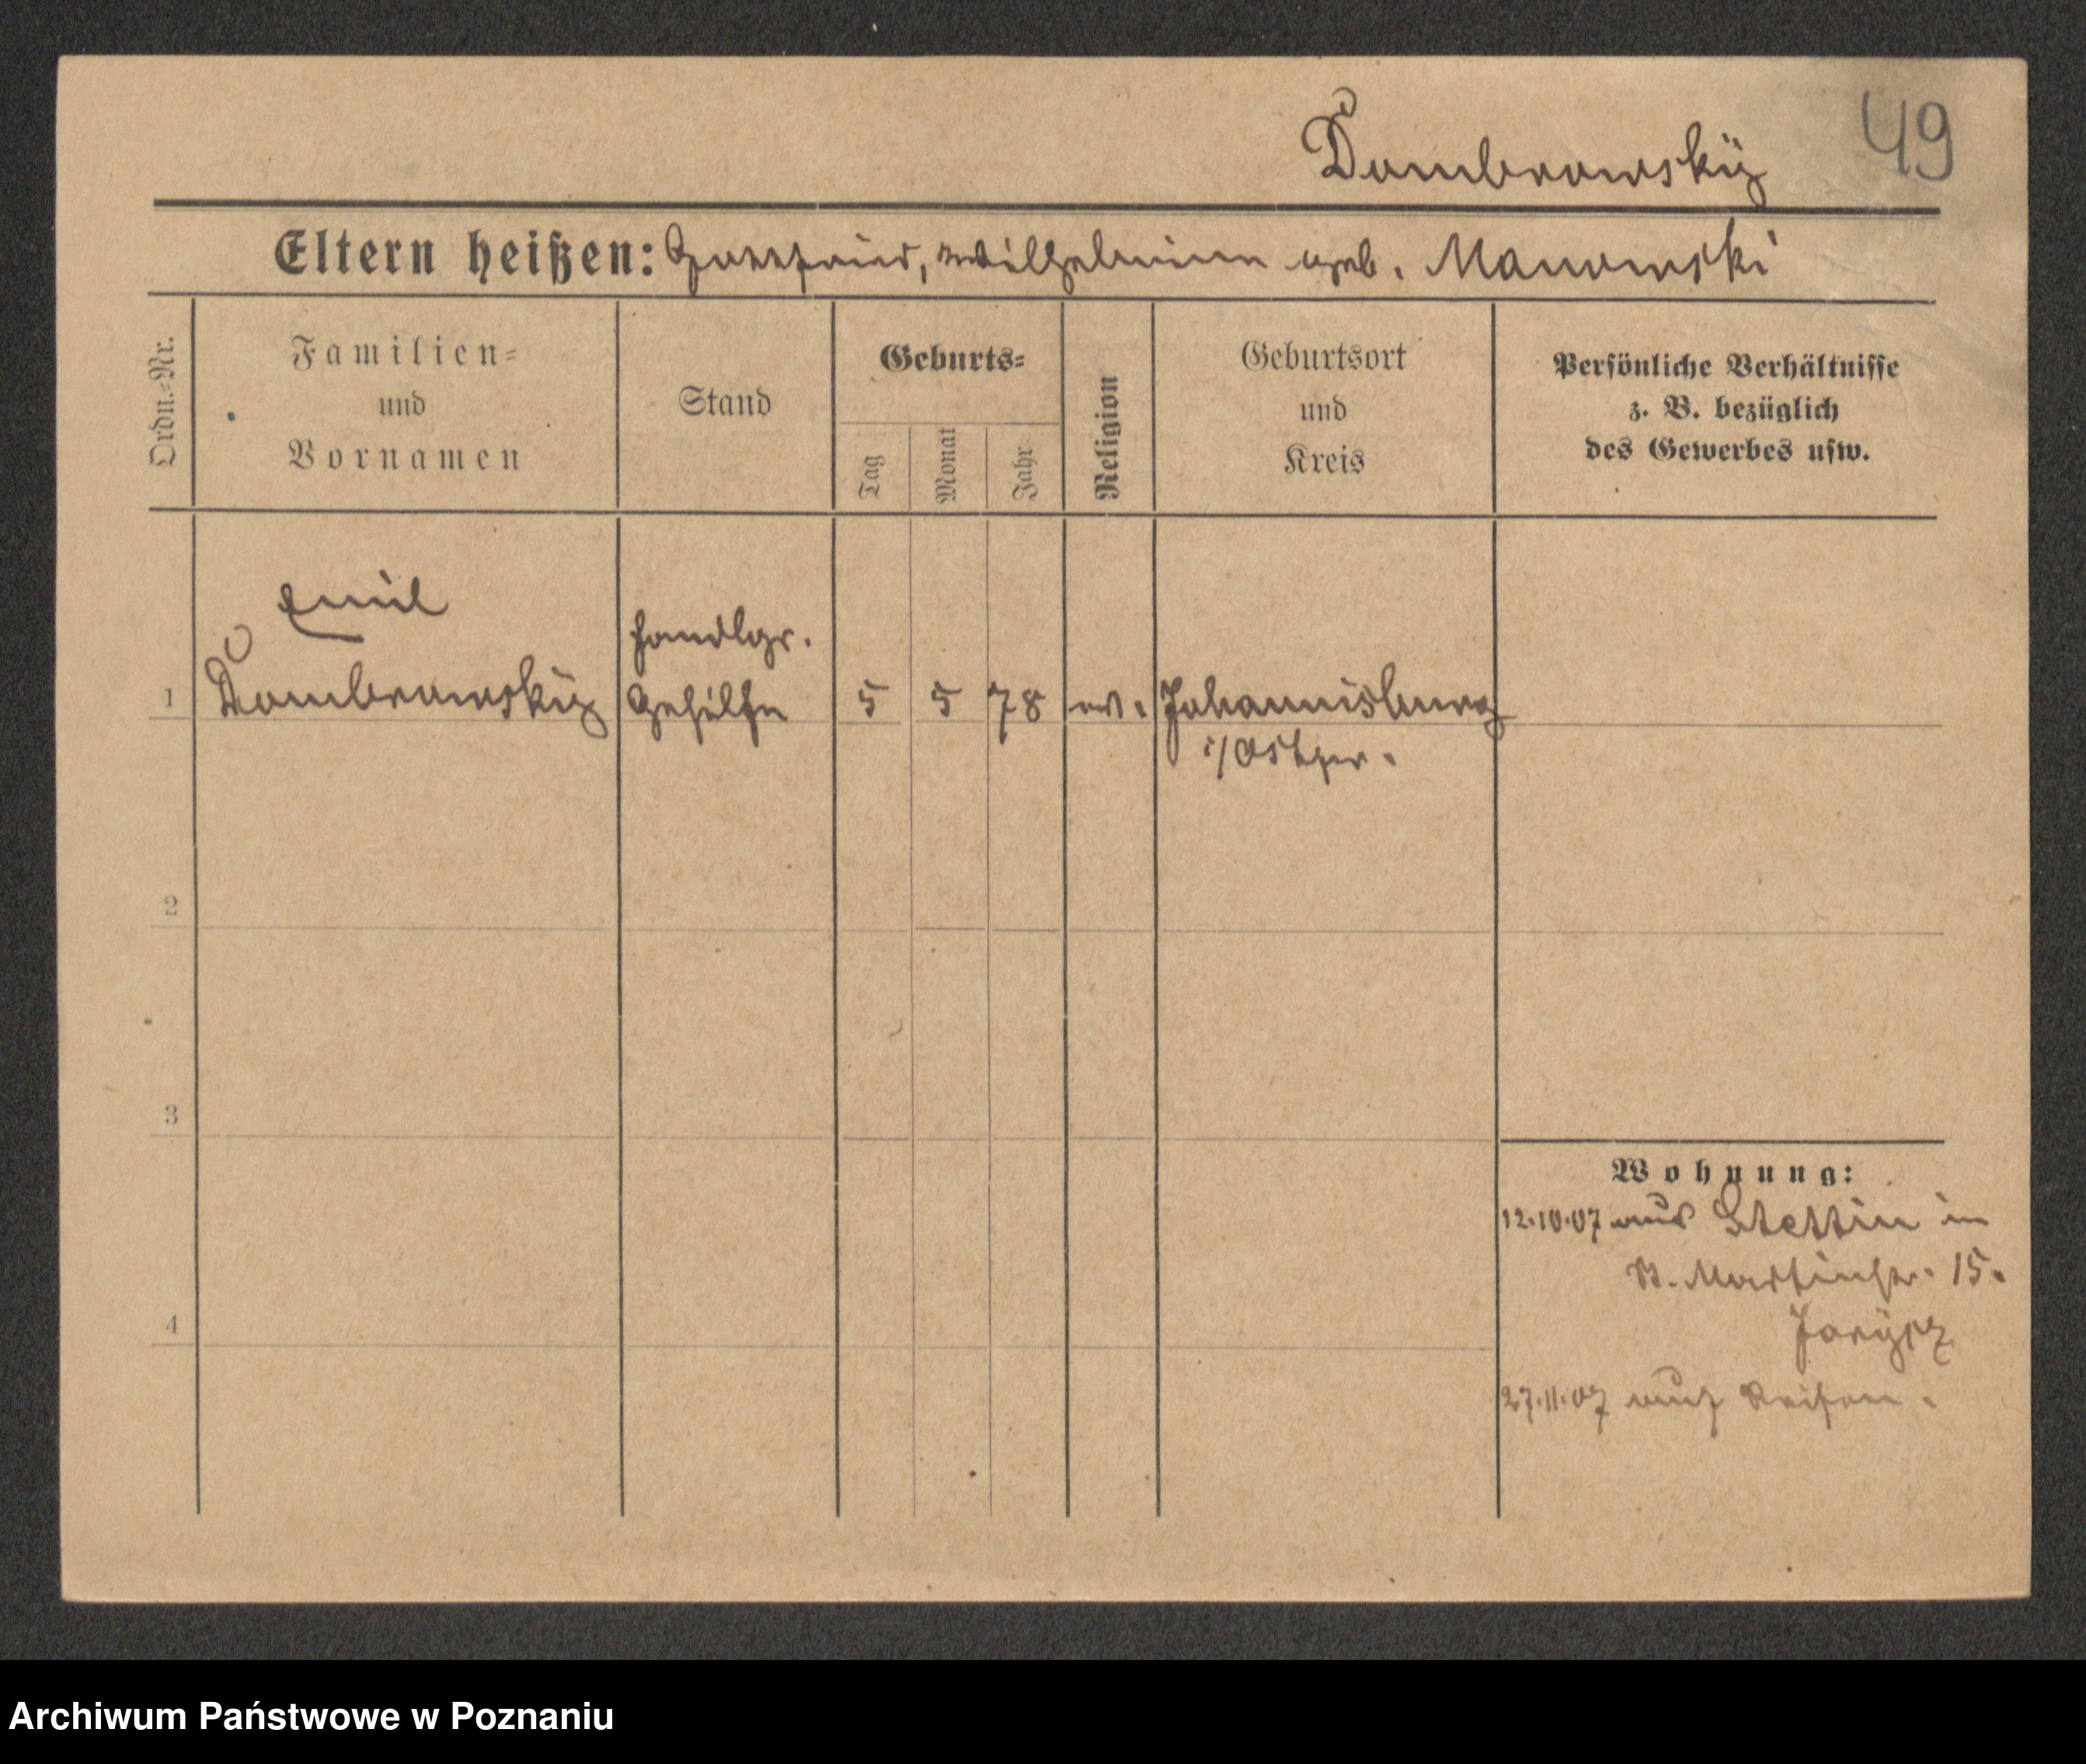 Dombrowsky 49
Eltern heißen: Gottfried, Wilhelmine geb. Manowski
Ordn.-Nr.
Familien-
und
Vornamen
Stand
Geburts-
Tag
Monat
Jahr
Religion
Geburtsort
und
Kreis
Persönliche Verhältnisse
z. B. bezüglich
des Gewerbes usw.
Emil
Handlgs.
1 Dombrowsky Gehilfe 5 5 78 ev. Johannisburg
i/Ostpr.
2
3
Wohnung:
12.10.07 aus Stettin in
St. Martinstr. 15.
4
27.11.07 auf Reisen.
Archiwum Państwowe w Poznaniu